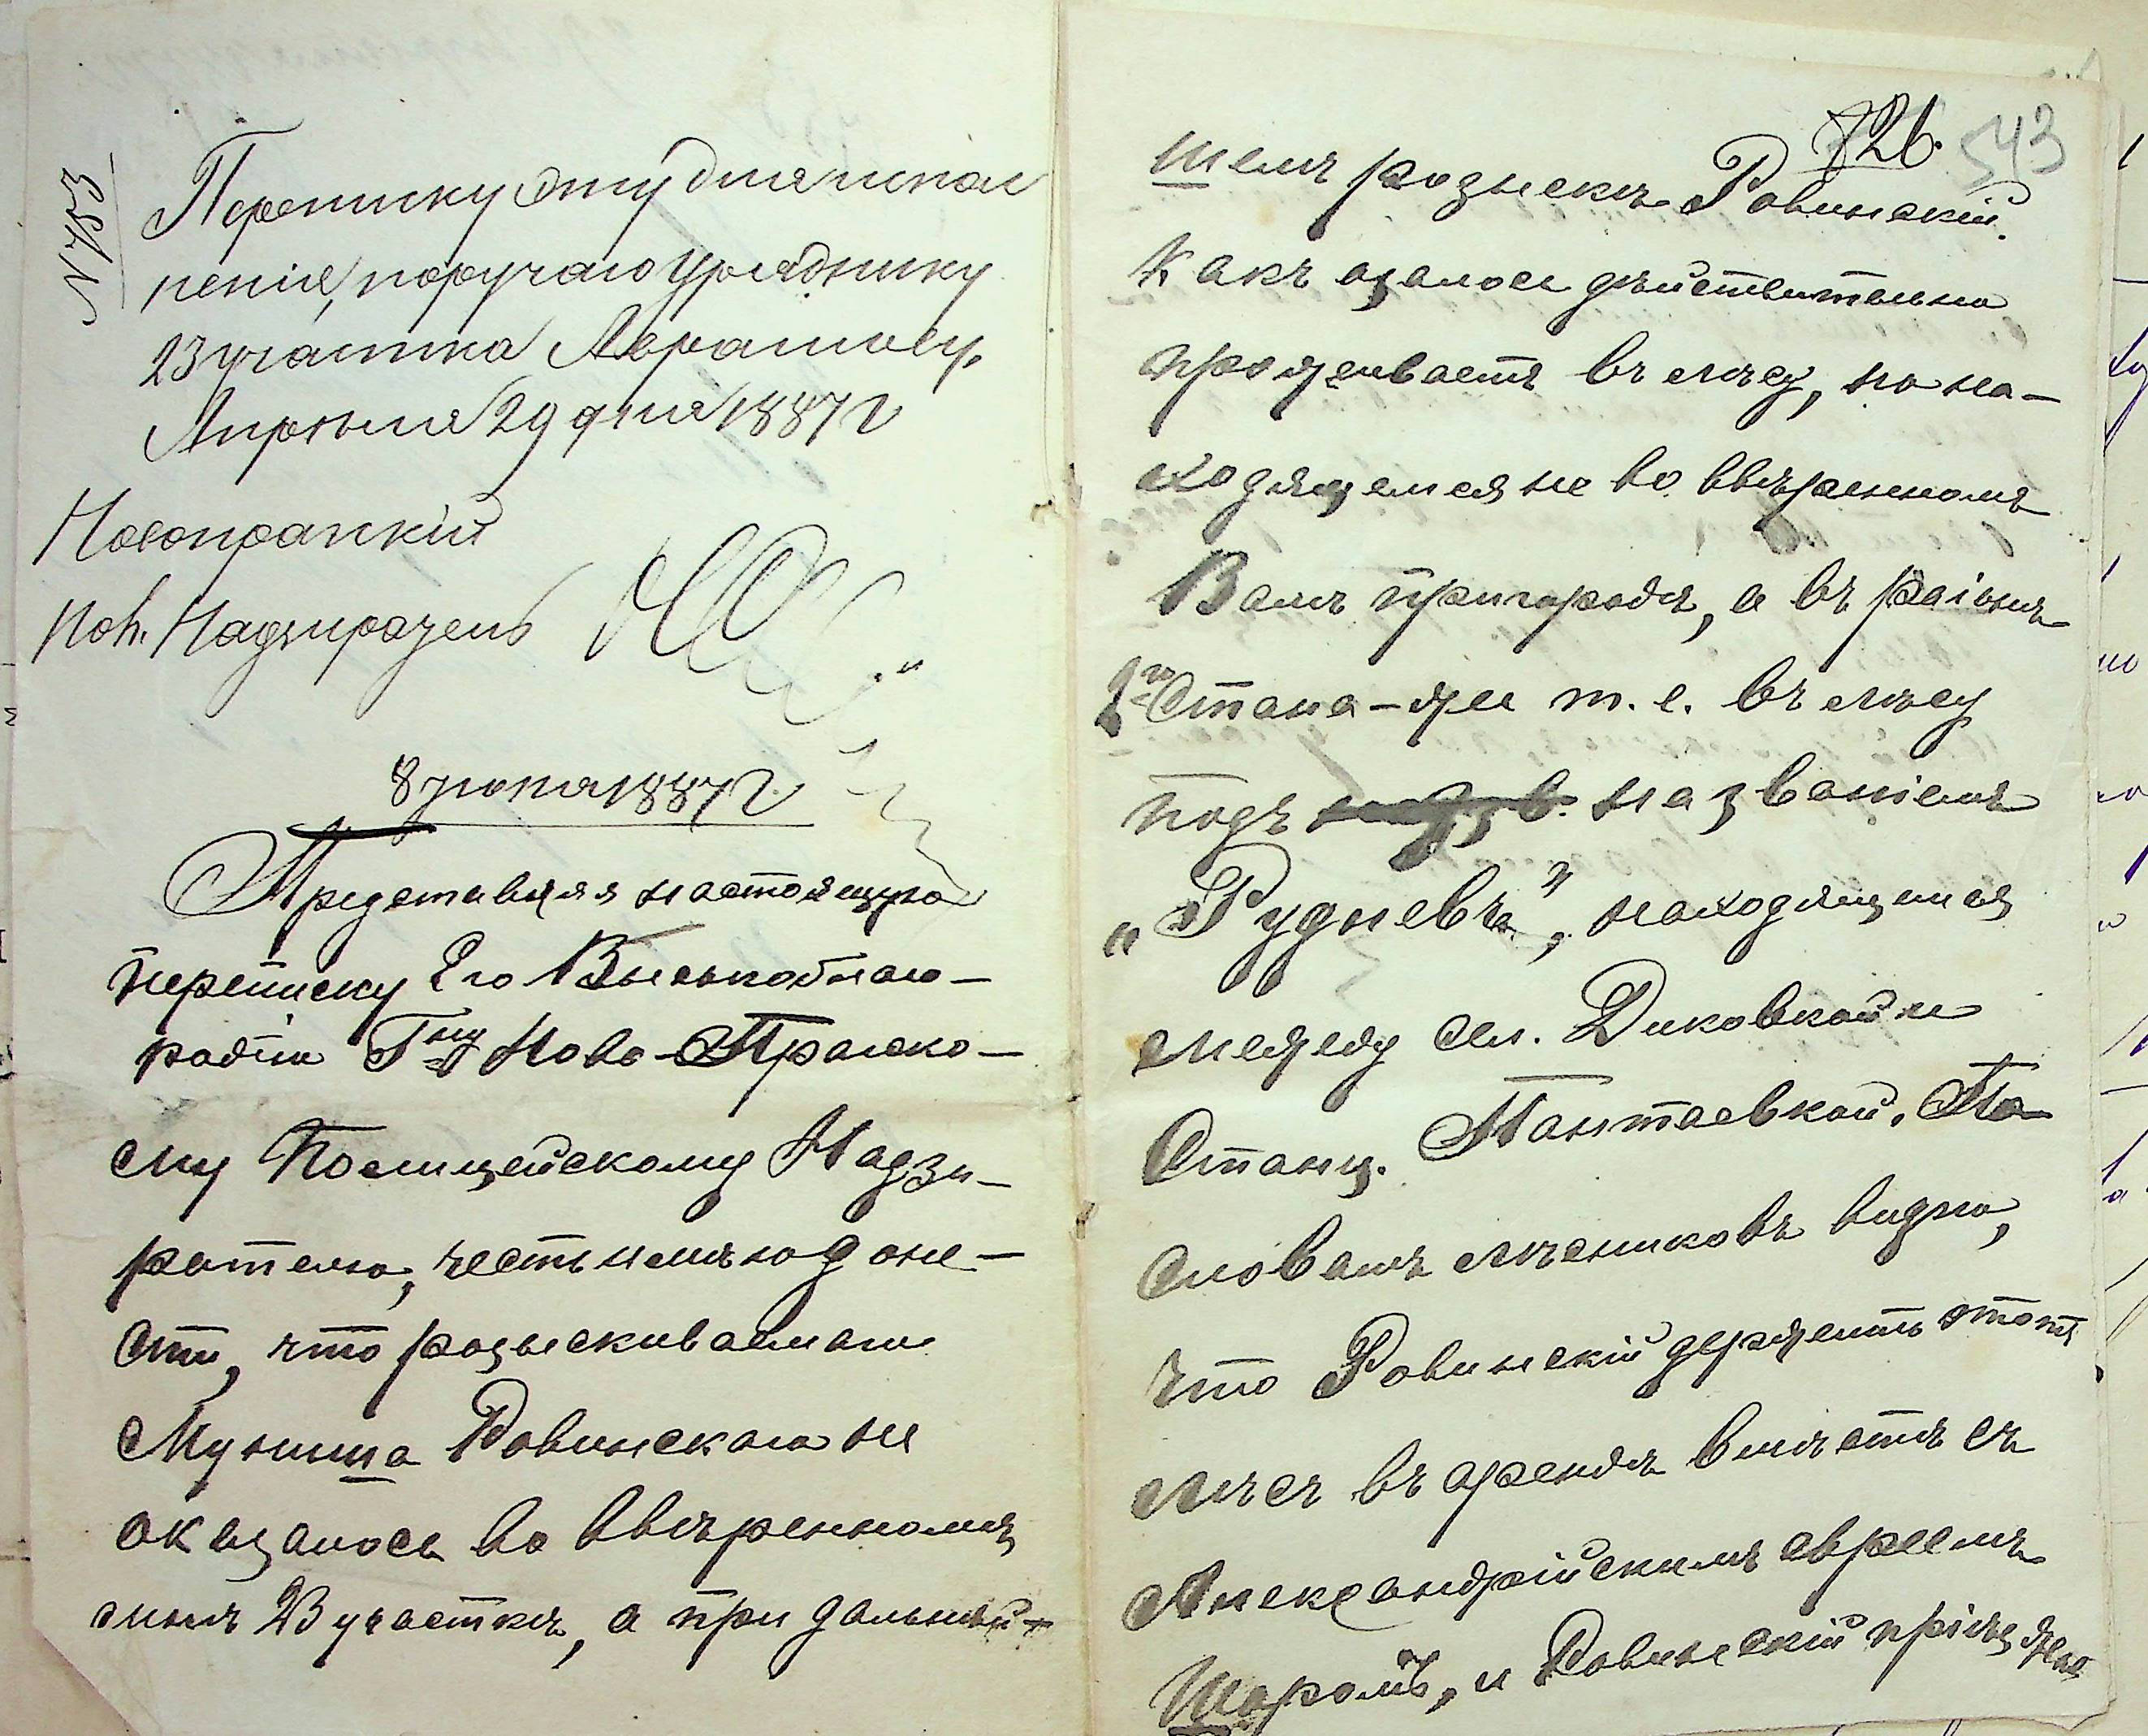 N 783
Переписку эту для испол
ненія, поручаю Уряднику
23 участка Абрамову.
Апрѣля 29 дня 1887 г
Новопражскій
Пол. Надзиратель
8 Іюня 1887 г.
Представляя настоящую
переписку Его Высокобла го-
родію Г-ну Ново-Пражско-
му Полицейскому Надзи-
рателю, честь имѣю доне-
сти, что розыскиваемаго
Муниша Ровинскаго не
оказалось во ввѣренномъ
мнѣ 23 участкѣ, а при дальнѣй-
726. 543
шемъ розыскѣ Ровинскій.
Какъ оказалось дѣйствительно
проживаетъ въ лѣсу, но на-
ходящемся не во ввѣренномъ
Вамъ пригородѣ, а въ раіонѣ
2го Стана-же т. е. въ лѣсу
подъ названіемъ
„Рудневъ", находящемся
между сел. Диковкой и
Станц. Пантаевкой. По
словамъ лѣсниковъ видно,
что Ровинскій держитъ этотъ
лѣсъ въ арендѣ вмѣстѣ съ
Александрійскимъ евреемъ
Шоромъ, и Ровинскій пріѣзжа